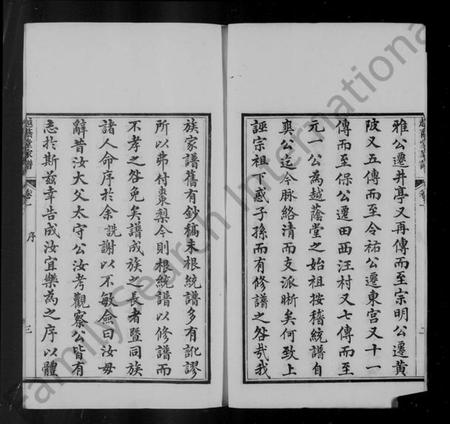 雅公遷井亭又再傳而至宗明公遷黃
陂又五傳而至今祐公遷東宮又十一
傳而至保公遷田西汪村又七傳而至
元一公為越蔭堂之始祖按稽統譜自
奐公迄今脉絡清而支派晰矣何致上
誣宗祖下惑子孫而有修譜之咎哉我
族家譜舊有鈔稿未根統譜多有訛謬
所以弗付棗梨今則根統譜以修譜而
不孝之咎免矣譜成族之長者暨同族
諸人命序於余詵謝以不敏僉曰汝毋
辭昔汝大父太守公汝考觀察公皆有
志於斯茲幸告成汝宜樂為之序以體
越蔭堂家譜
卷一
序
三
FamilySearch International